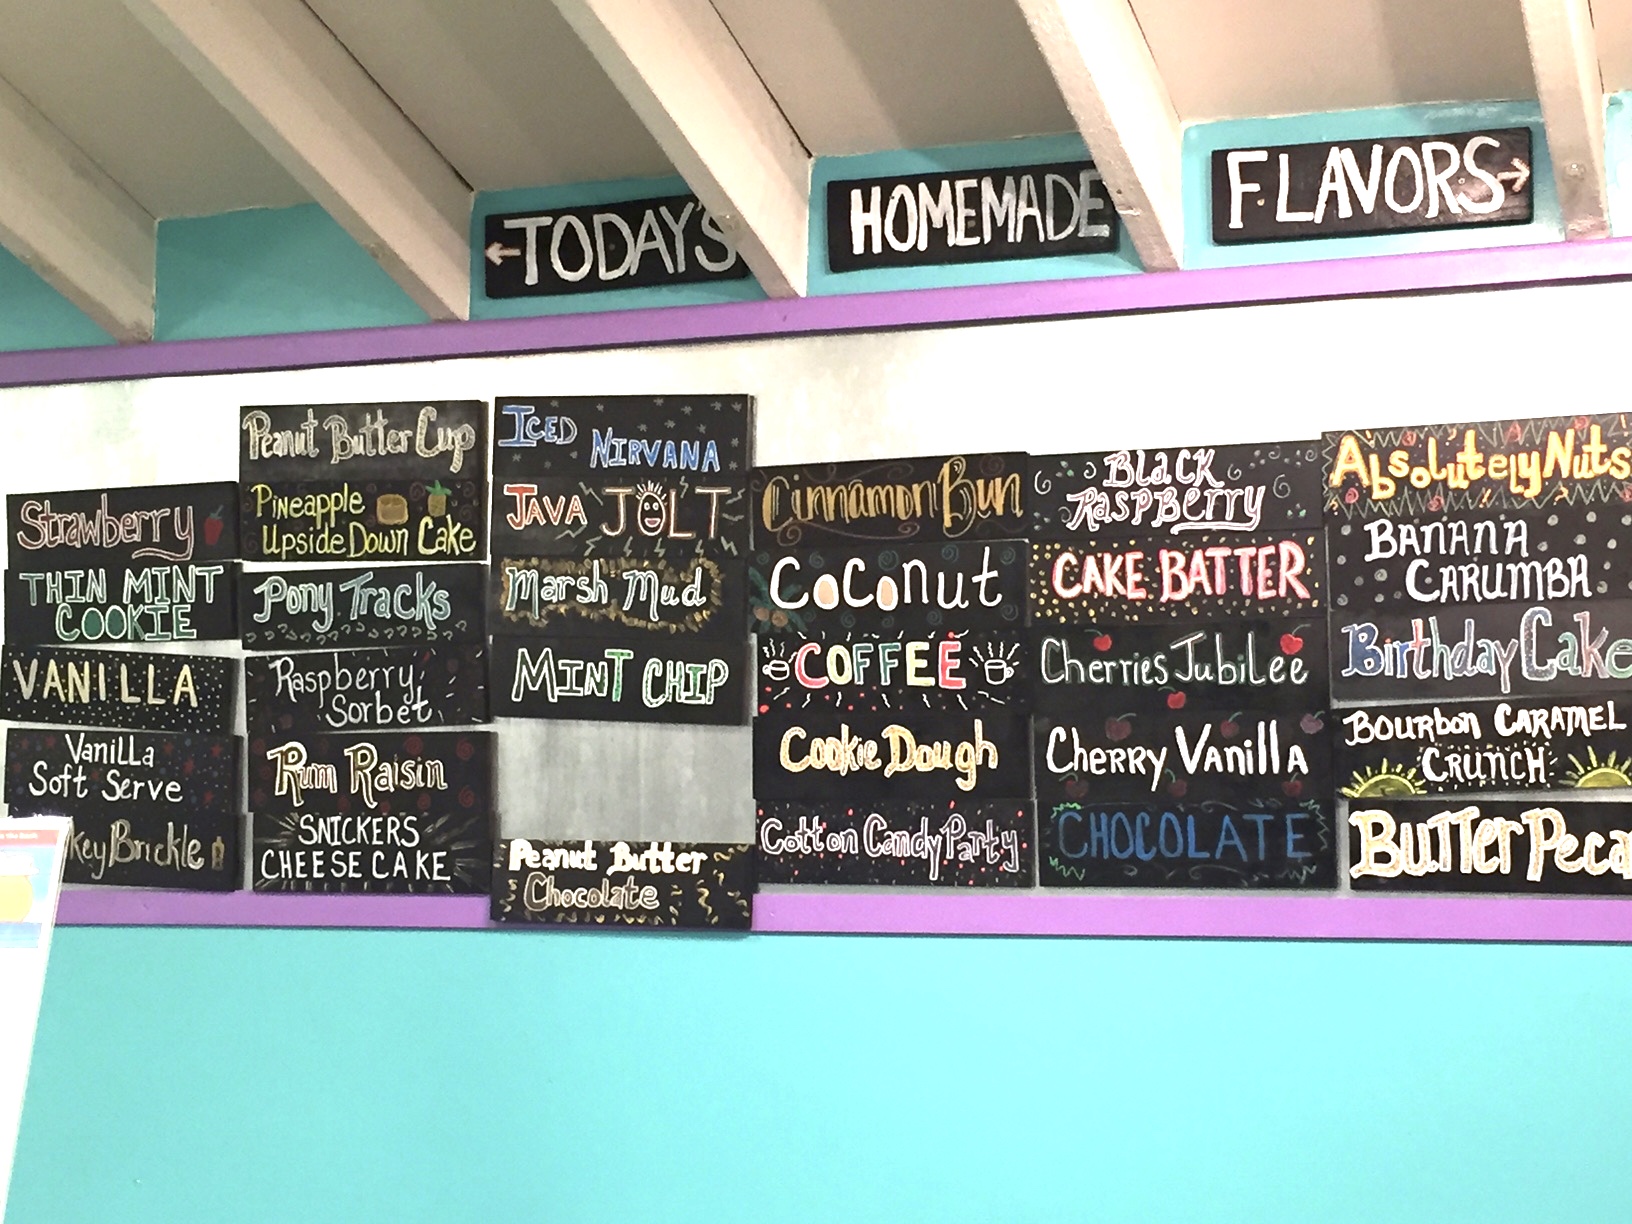 ←TODAY'S
HOMEMADE
FLAVORS→
Strawberry
THIN MINT
COOKIE
VANILLA
Vanilla
Soft Serve
Brickle
Peanut Butter Cup
Pineapple
Upside Down Cake
Pony Tracks
Raspberry
Sorbet
Rum Raisin
SNICKERS
CHEESE CAKE
ICED
NIRVANA
JAVA JOLT
Marsh Mud
MINT CHIP
Peanut Butter
Chocolate
Cinnamon Bun
Coconut
COFFEE
Cookie Dough
Cotton Candy Party
Black
Raspberry
CAKE BATTER
Cherries Jubilee
Cherry Vanilla
CHOCOLATE
Absolutely Nuts
BANANA
CARUMBA
Birthday Cake
BOURBON CARAMEL
CRUNCH
BUTTER Peca